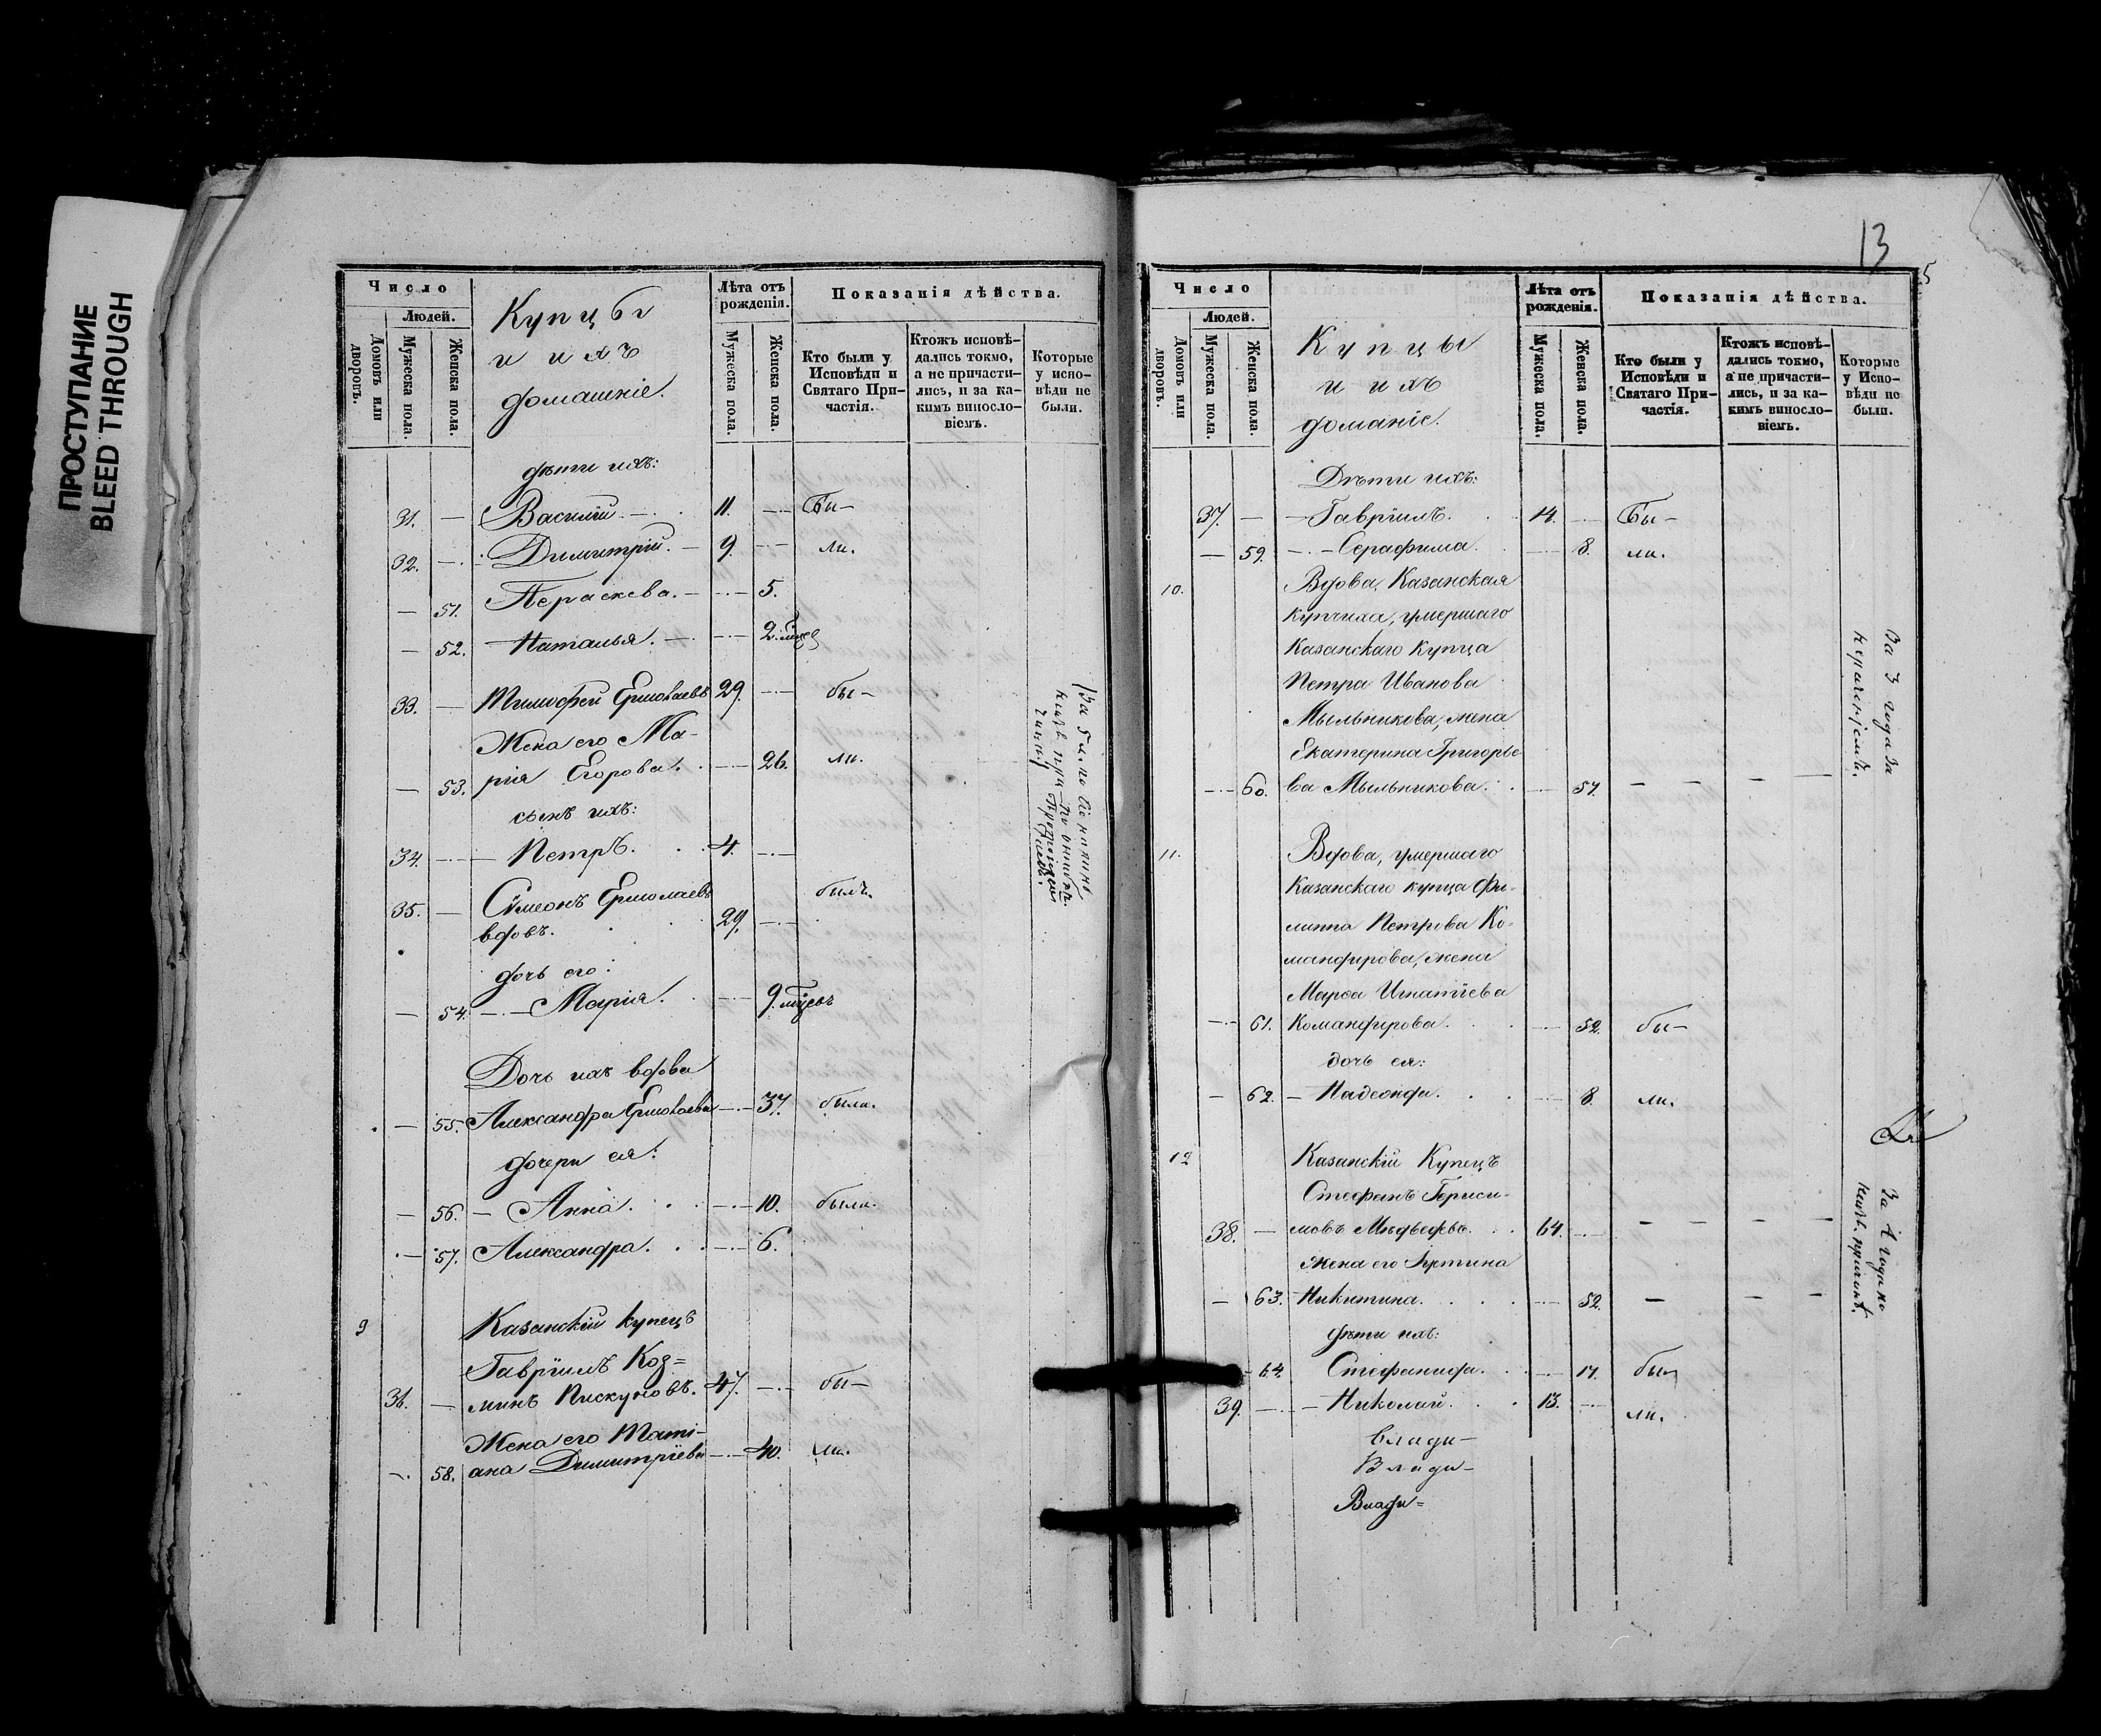 ПРОСТУПАНИЕ
BLEED THROUGH
Число
Людей.
Домовъ или дворовъ.
Мужеска пола.
Женска пола.
Купцы
и ихъ
домашніе.
Лѣта отъ рожденія.
Мужеска пола.
Женска пола.
Показанія дѣйства.
Кто были у Исповѣди и Святаго При-частія.
Ктожъ исповѣ-дались токмо, а не причасти-лись, и за ка-кимъ винословіемъ.
Которые у испо-вѣди не были.
дѣти ихъ:
31. — Василій. — 11. — Бы-
32. — Димитрій. — 9. — ли.
— 51. Параскева. — — 5.
— 52. Наталья. — — 2.
33. — Тимофей Ермолаевъ 29. — бы-
Жена его Ма-
— 53. рія Егорова. — 26. ли.
сынъ ихъ:
34. — Петръ. 4. —
35. — Сѵмеонъ Ермолаевъ былъ.
вдовъ. 29. —
дочь его:
— 54. — Марія. — 9. мцевъ
Дочь ихъ вдова
— 55. Александра Ермолаева — 37. была.
дочери ея:
— 56. — Анна. — 10. была.
— 57. Александра. — 6.
9 Казанскій купецъ
Гавріилъ Коз=
36. — минъ Пискуновъ. 47. — бы-
Жена его Таті-
— 58. ана Димитріева — 40. ли.
13
5
Число
Людей.
Домовъ или дворовъ.
Мужеска пола.
Женска пола.
Купцы
и ихъ
доманіе.
Лѣта отъ рожденія.
Мужеска пола.
Женска пола.
Показанія дѣйства.
Кто были у Исповѣди и Святаго При-частія.
Ктожъ исповѣ-дались токмо, а не причасти-лись, и за ка-кимъ винословіемъ.
Которые у Испо-вѣди не были.
Дѣти ихъ:
37. — Гавріилъ. 14. — Бы-
— 59. — Серафима. — 8. ли.
10. Вдова, Казанская
купчиха, умершаго
Казанскаго Купца
Петра Иванова
Мыльникова, жена
Екатерина Григорье
— 60. ва Мыльникова. — 57. — — —
За 3 года за
11. Вдова, умершаго
Казанскаго купца Фи-
липпа Петрова Ко-
мандирова, жена
Марѳа Игнатіева
— 61. Командирова. — 52. бы-
дочь ея:
— 62. — Надежда. — 8. ли.
12 Казанскій Купецъ
Стефанъ Гераси-
38. — мовъ Медвѣдевъ. 64. — — — —
жена его
— 63. Никитина. — 52. — — —
За 4 года по
дѣти ихъ:
64. Стефанида. — 17. бы
39. — Николай. 13. — ли.
влади-
Влади-
Влади=